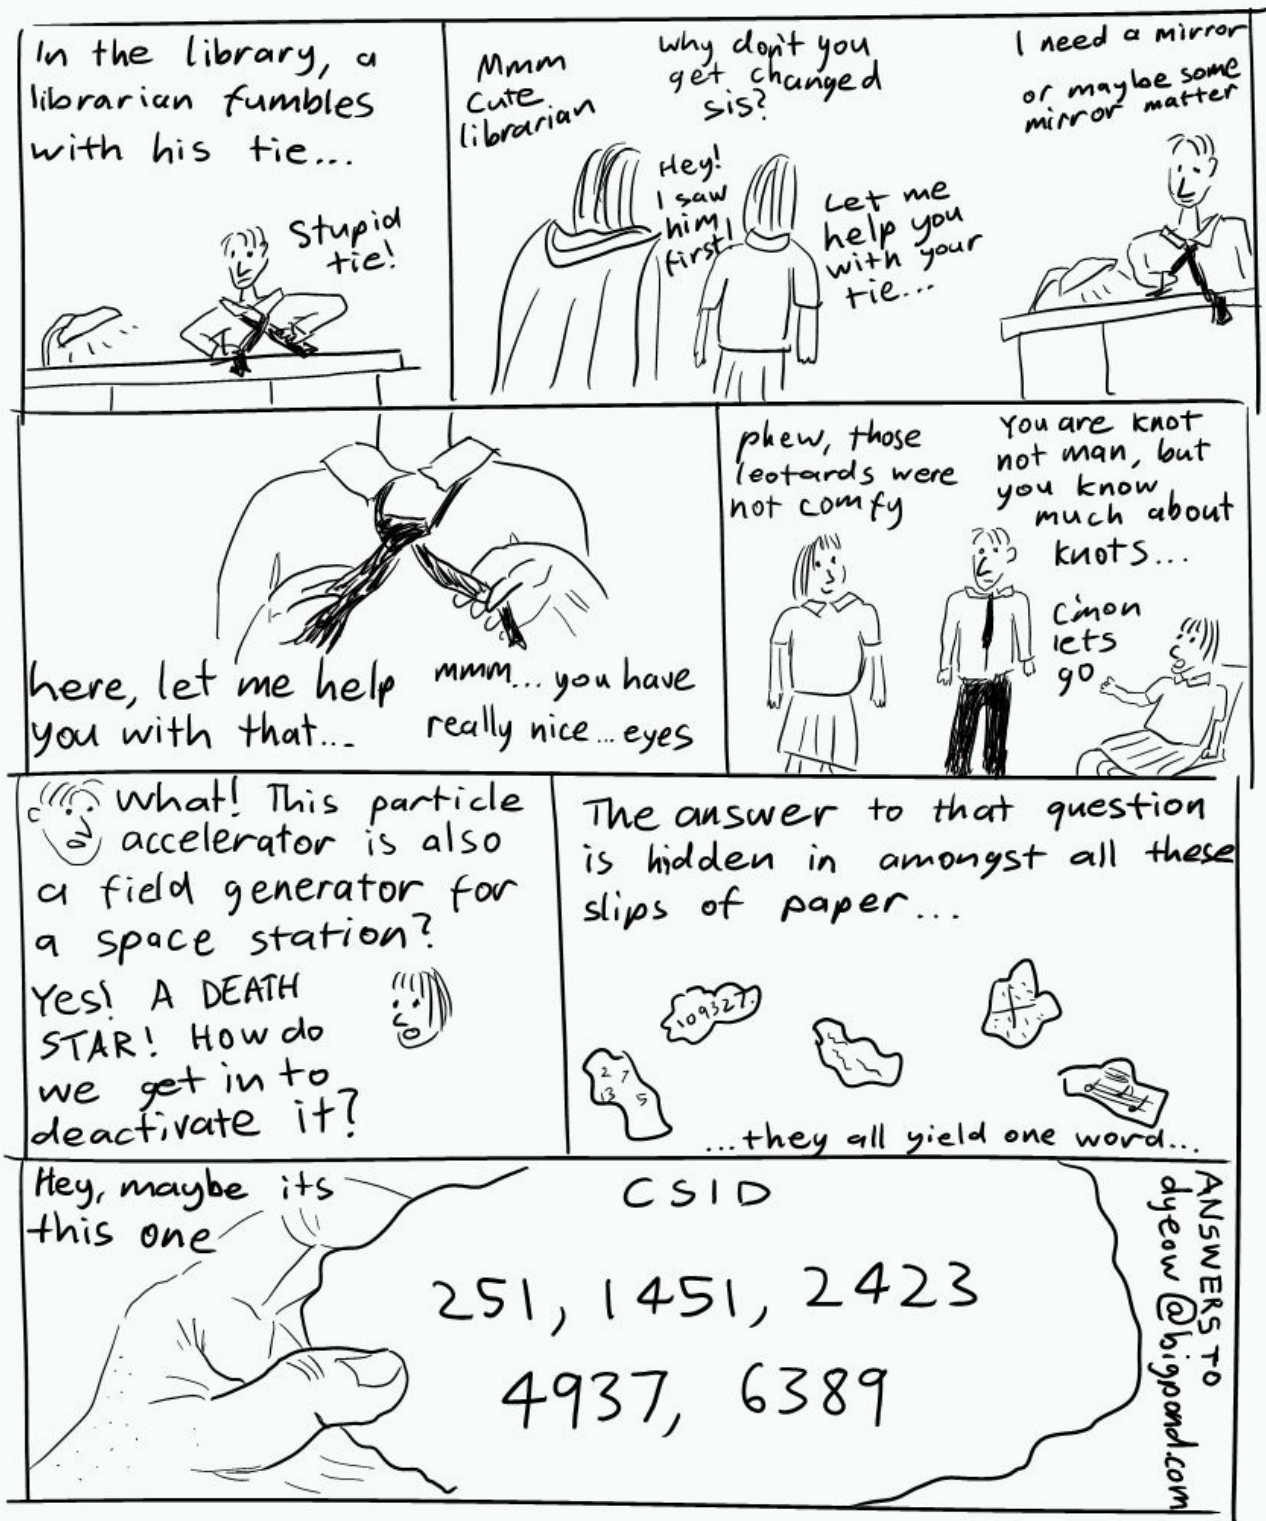 In the library, a
librarian fumbles
with his tie...
Stupid
tie!
Mmm
Cute
librarian
Why don't you
get changed
sis?
Hey!
I saw
him
first!
Let me
help you
with your
tie...
I need a mirror
or maybe some
mirror matter
here, let me help
you with that...
mmm... you have
really nice... eyes
phew, those
leotards were
not comfy
You are knot
not man, but
you know
much about
knots...
C'mon
lets
go
What! This particle
accelerator is also
a field generator for
a space station?
Yes! A DEATH
STAR! How do
we get in to
deactivate it?
The answer to that question
is hidden in amongst all these
slips of paper...
109327.
2 7
13 5
...they all yield one word...
Hey, maybe its
this one
CSID
251, 1451, 2423
4937, 6389
ANSWERS TO
dyeow@bigpond.com